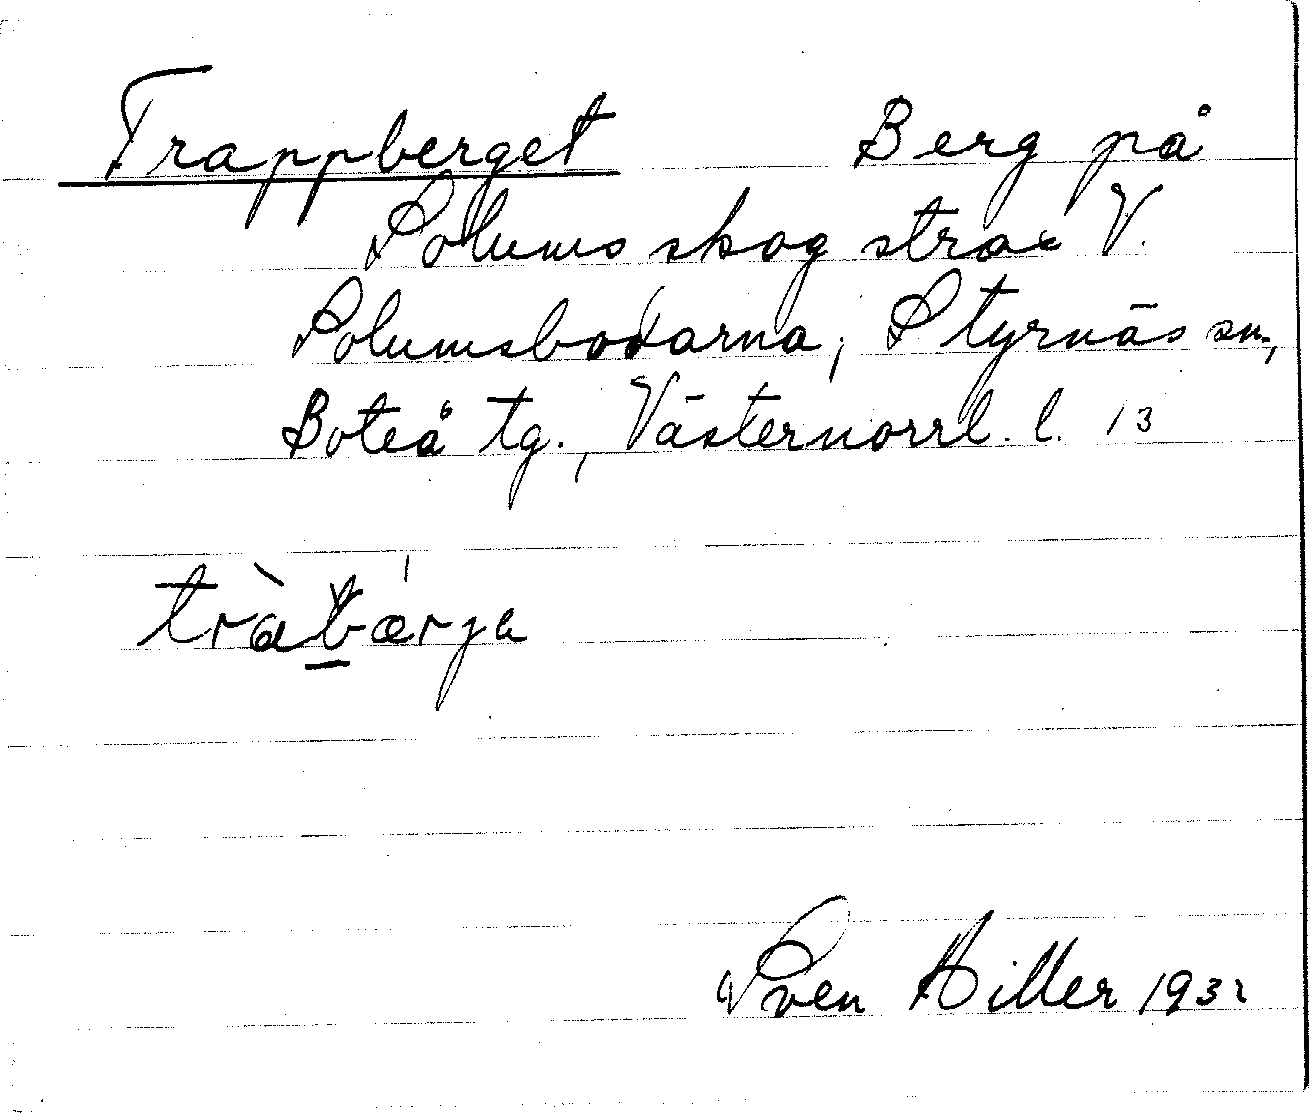 Trappberget Berg på
Solums skog strax V.
Solumsbodarna, Styrnäs sn,
Boteå tg., Västernorrl. l. 13
tràbǽrja
Sven Hiller 1932